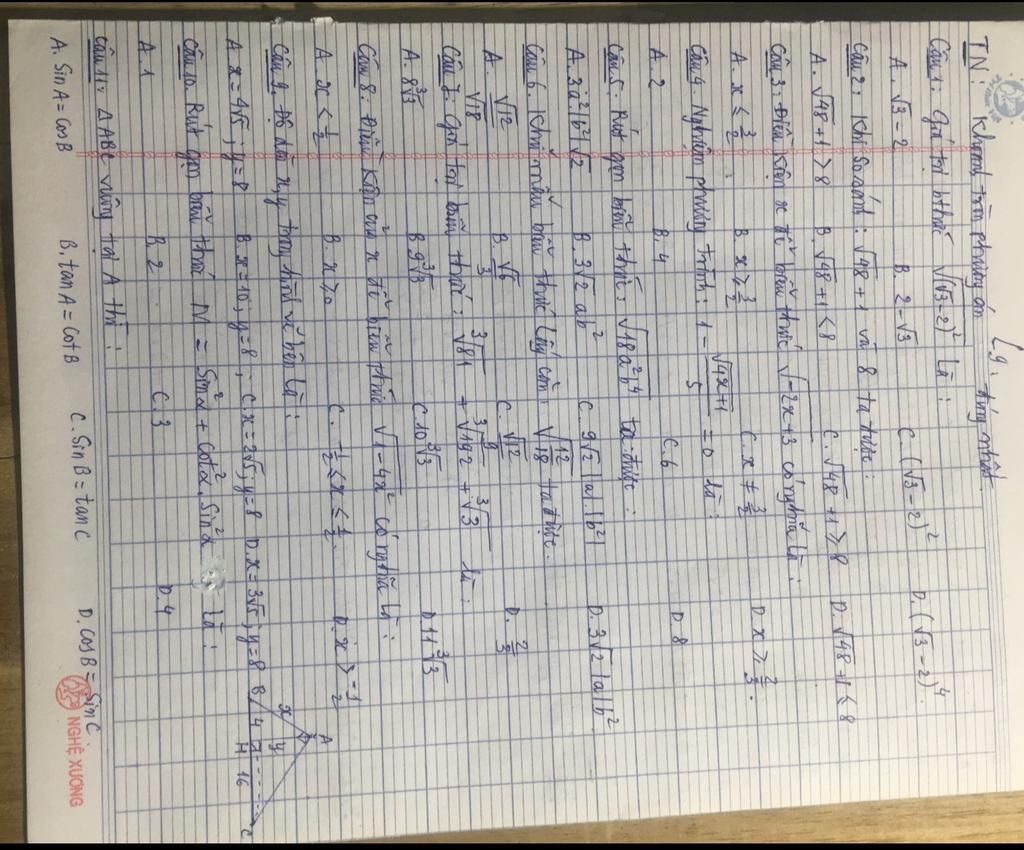 Lg.
TN: Khoanh tròn phương án đúng nhất.
Câu 1: Giá trị bthức √(√3-2)² là:
A. √3-2 B. 2-√3 C. (√3-2)² D. (√3-2)⁴.
Câu 2: Khi so sánh: √48+1 và 8 ta được:
A. √48+1>8 B. √48+1<8 C. √48+1≥8 D. √48+1≤8
Câu 3: Điều kiện x để biểu thức √-2x+3 có nghĩa là:
A. x ≤ 3/2 B. x ≥ 3/2 C. x ≠ 3/2 D. x ≥ 2/3.
Câu 4. Nghiệm phương trình: 1 - √4x+1/5 = 0 là:
A. 2 B. 4 C. 6 D. 8
Câu 5: Rút gọn biểu thức: √18a²b⁴ ta được:
A. 3a²|b²|√2 B. 3√2 ab² C. 9√2|a|.|b²| D. 3√2|a|b²
Câu 6. Khử mẫu biểu thức lấy căn: √12/18 ta được.
A. √12/√18 B. √6/3 C. √12/9 D. 2/3
Câu 7: Giá trị biểu thức: ³√81 + ³√192 + ³√3 là:
A. 8³√3 B. 9³√3 C. 10³√3 D. 11³√3
Câu 8: Điều kiện của x để biểu thức √1-4x² có nghĩa là:
A. x < 1/2 B. x ≥ 0 C. -1/2 ≤ x ≤ 1/2. D. x ≥ -1/2
Câu 9. Độ dài x,y trong hình vẽ bên là:
A. x=4√5; y=8 B. x=10; y=8; C. x=2√5; y=8 D. x=3√5; y=8
A
x
y
B
4
H
16
C
Câu 10. Rút gọn biểu thức M = Sin²α + Cot²α.Sin²α là:
A. 1 B. 2 C. 3 D. 4
Câu 11: ΔABC vuông tại A thì:
A. Sin A = Cos B B. tan A = Cot B C. Sin B = tan C D. Cos B = Sin C.
NGHỆ XƯƠNG